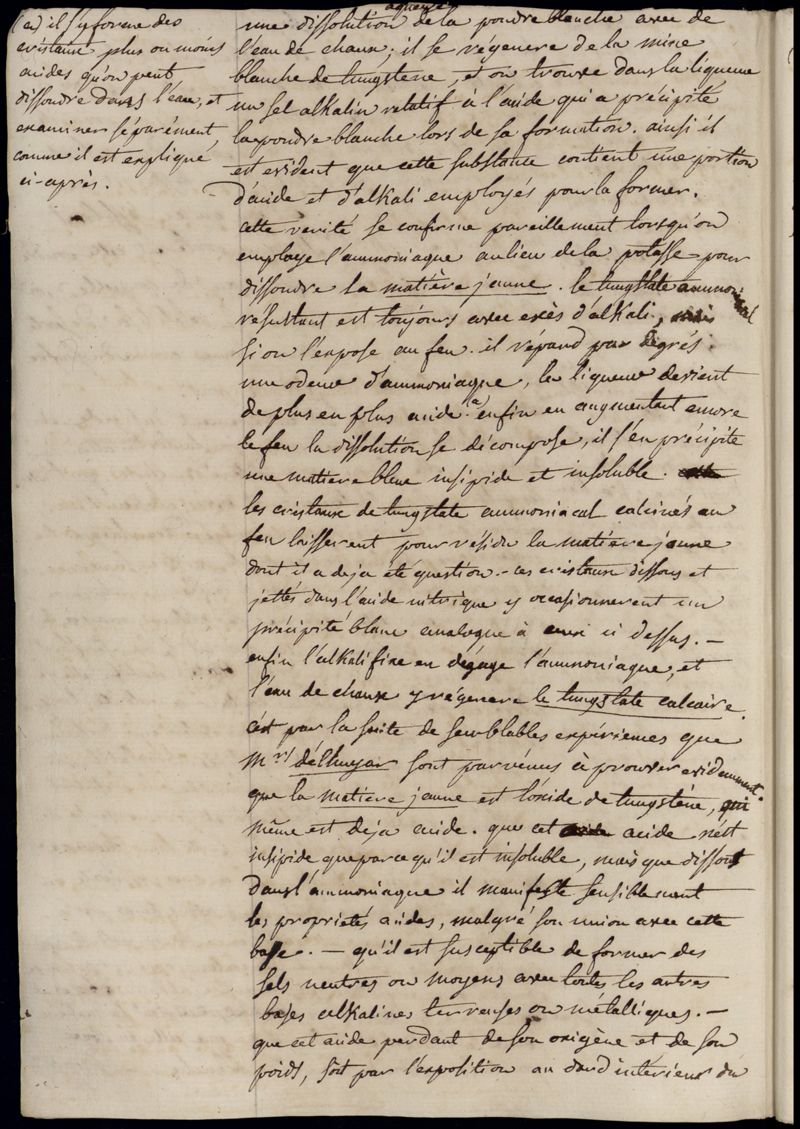 (a) il s'y forme des
cristaux plus ou moins
acides qu'on peut
dissoudre dans l'eau, et
examiner séparément,
comme il est expliqué
ci-après.
aqueuse
une dissolution de la poudre blanche avec de
l'eau de chaux, il se régenere de la mine
blanche de tungstene, et on trouve dans la liqueur
un sel alkalin relatif à l'acide qui a précipité
la poudre blanche lors de sa formation. ainsi il
est evident que cette substance contient une portion
d'acide et d'alkali employés pour la former.
cette verité se confirme pareillement lorsqu'on
employe l'ammoniaque au lieu de la potasse pour
dissoudre la matière jaune. le tungstate ammoniacal
résultant est toujours avec excès d'alkali, mais
si on l'expose au feu. il répand par dégrés.
une odeur d'ammoniaque, la liqueur devient
de plus en plus acide (a) enfin en augmentant encore
le feu la dissolution se décompose, il s'en précipite
une matiere bleue insipide et insoluble.
les cristaux de tungstate ammoniacal calcinés au
feu laisserent pour résidu la matiere jaune
dont il a deja été question. - ces cristaux dissous et
jettés dans l'acide nitrique y occasionnerent un
précipité blanc analogue à ceux ci dessus. -
enfin l'alkali fixe en dégage l'ammoniaque, et
l'eau de chaux y régenere le tungstate calcaire.
c'est par la suite de semblables expériences que
Mrs délhuyar sont parvenus à prouver evidemment.
que la matiere jaune est l'oxide de tungstène, qui
même est deja acide. que cet acide n'est
insipide que parce qu'il est insoluble, mais que dissout
dans l'ammoniaque il manifeste sensiblement
les proprietés acides, malgré son union avec cette
base. - qu'il est susceptible de former des
sels neutres ou moyens avec toutes les autres
bases alkalines terreuses ou métalliques. -
que cet acide perdant de son oxigène et de son
poids, soit par l'exposition au dard intérieur du